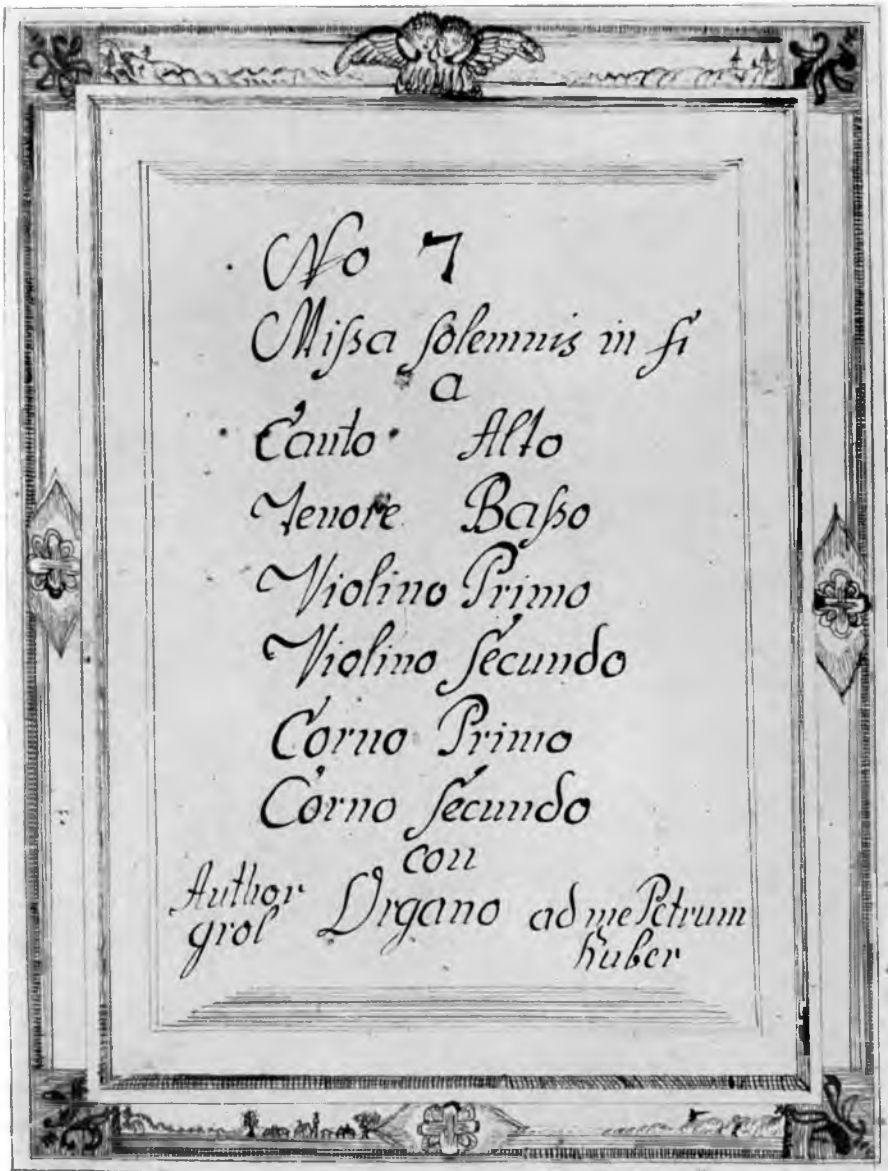 No 7
Missa solemnis in
a
Canto Alto
Tenore Basso
Violino Primo
Violino Secundo
Corno Primo
Corno Secundo
con
Author Organo ad me Petrum
grol huber